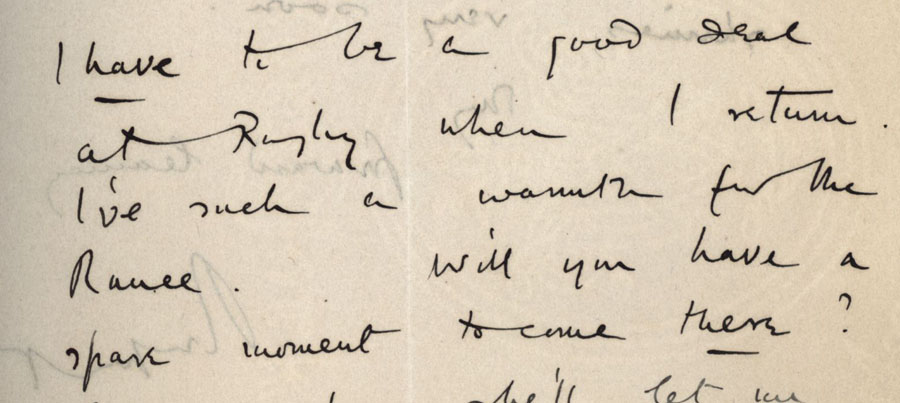 I have to be a good deal
at Rugby when I return.
I've such a warmth for the
Ranee. Will you have a
spare moment to come there?
she'll let me